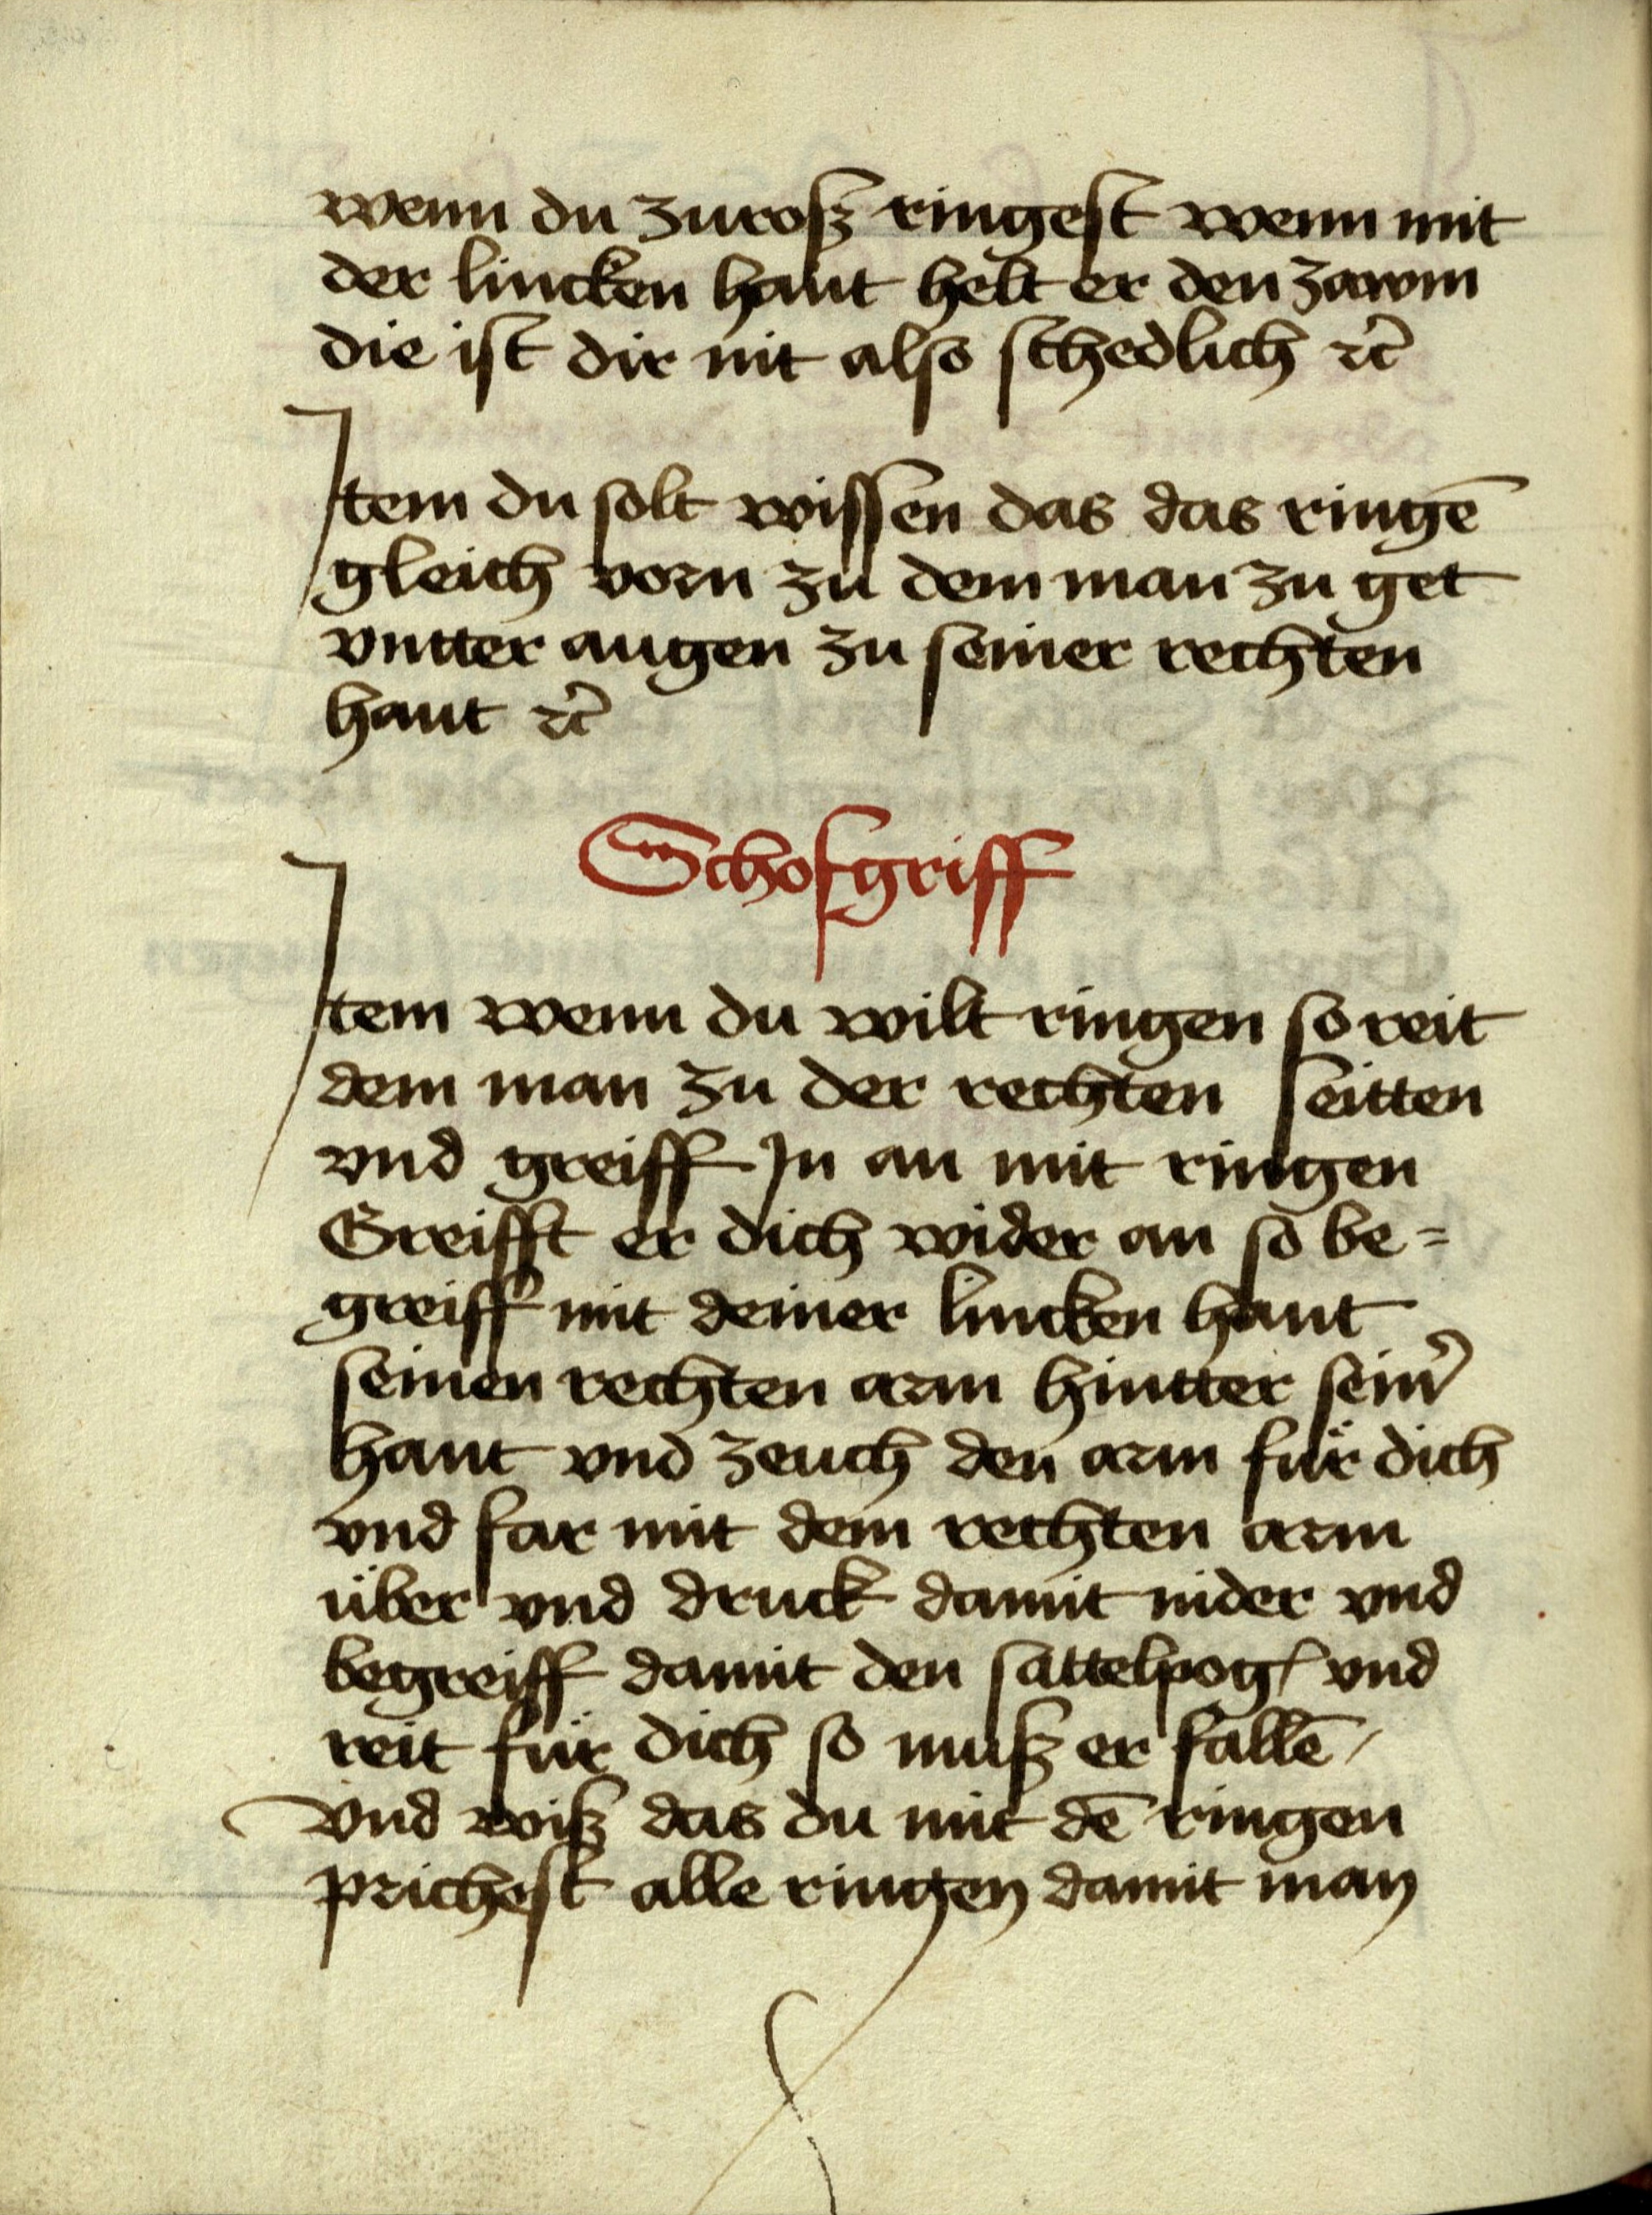 wenn du zuroß ringest wenn mit
der lincken hant helt er den zawm
die ist dir nit also schedlich ⁊c̃
Item du solt wissen das das ringē
gleich vorn zu dem man zu get
vntter augen zu seiner rechten
hant ⁊c̃
Schofgriff
Item wenn du wilt ringen so reit
dem man zu der rechten seitten
vnd greiff Jn an mit ringen
Greifft er dich wider an so be=
greiff mit deiner lincken hant
seinen rechten arm hintter sein̾
hant vnd zeuch den arm für dich
vnd far mit dem rechten arm
über vnd druck damit nider vnd
begreiff damit den sattelpog / vnd
reit für dich so muß er fallē /
Vnd wiß das du mit dē ringen
prichest alle ringen damit man